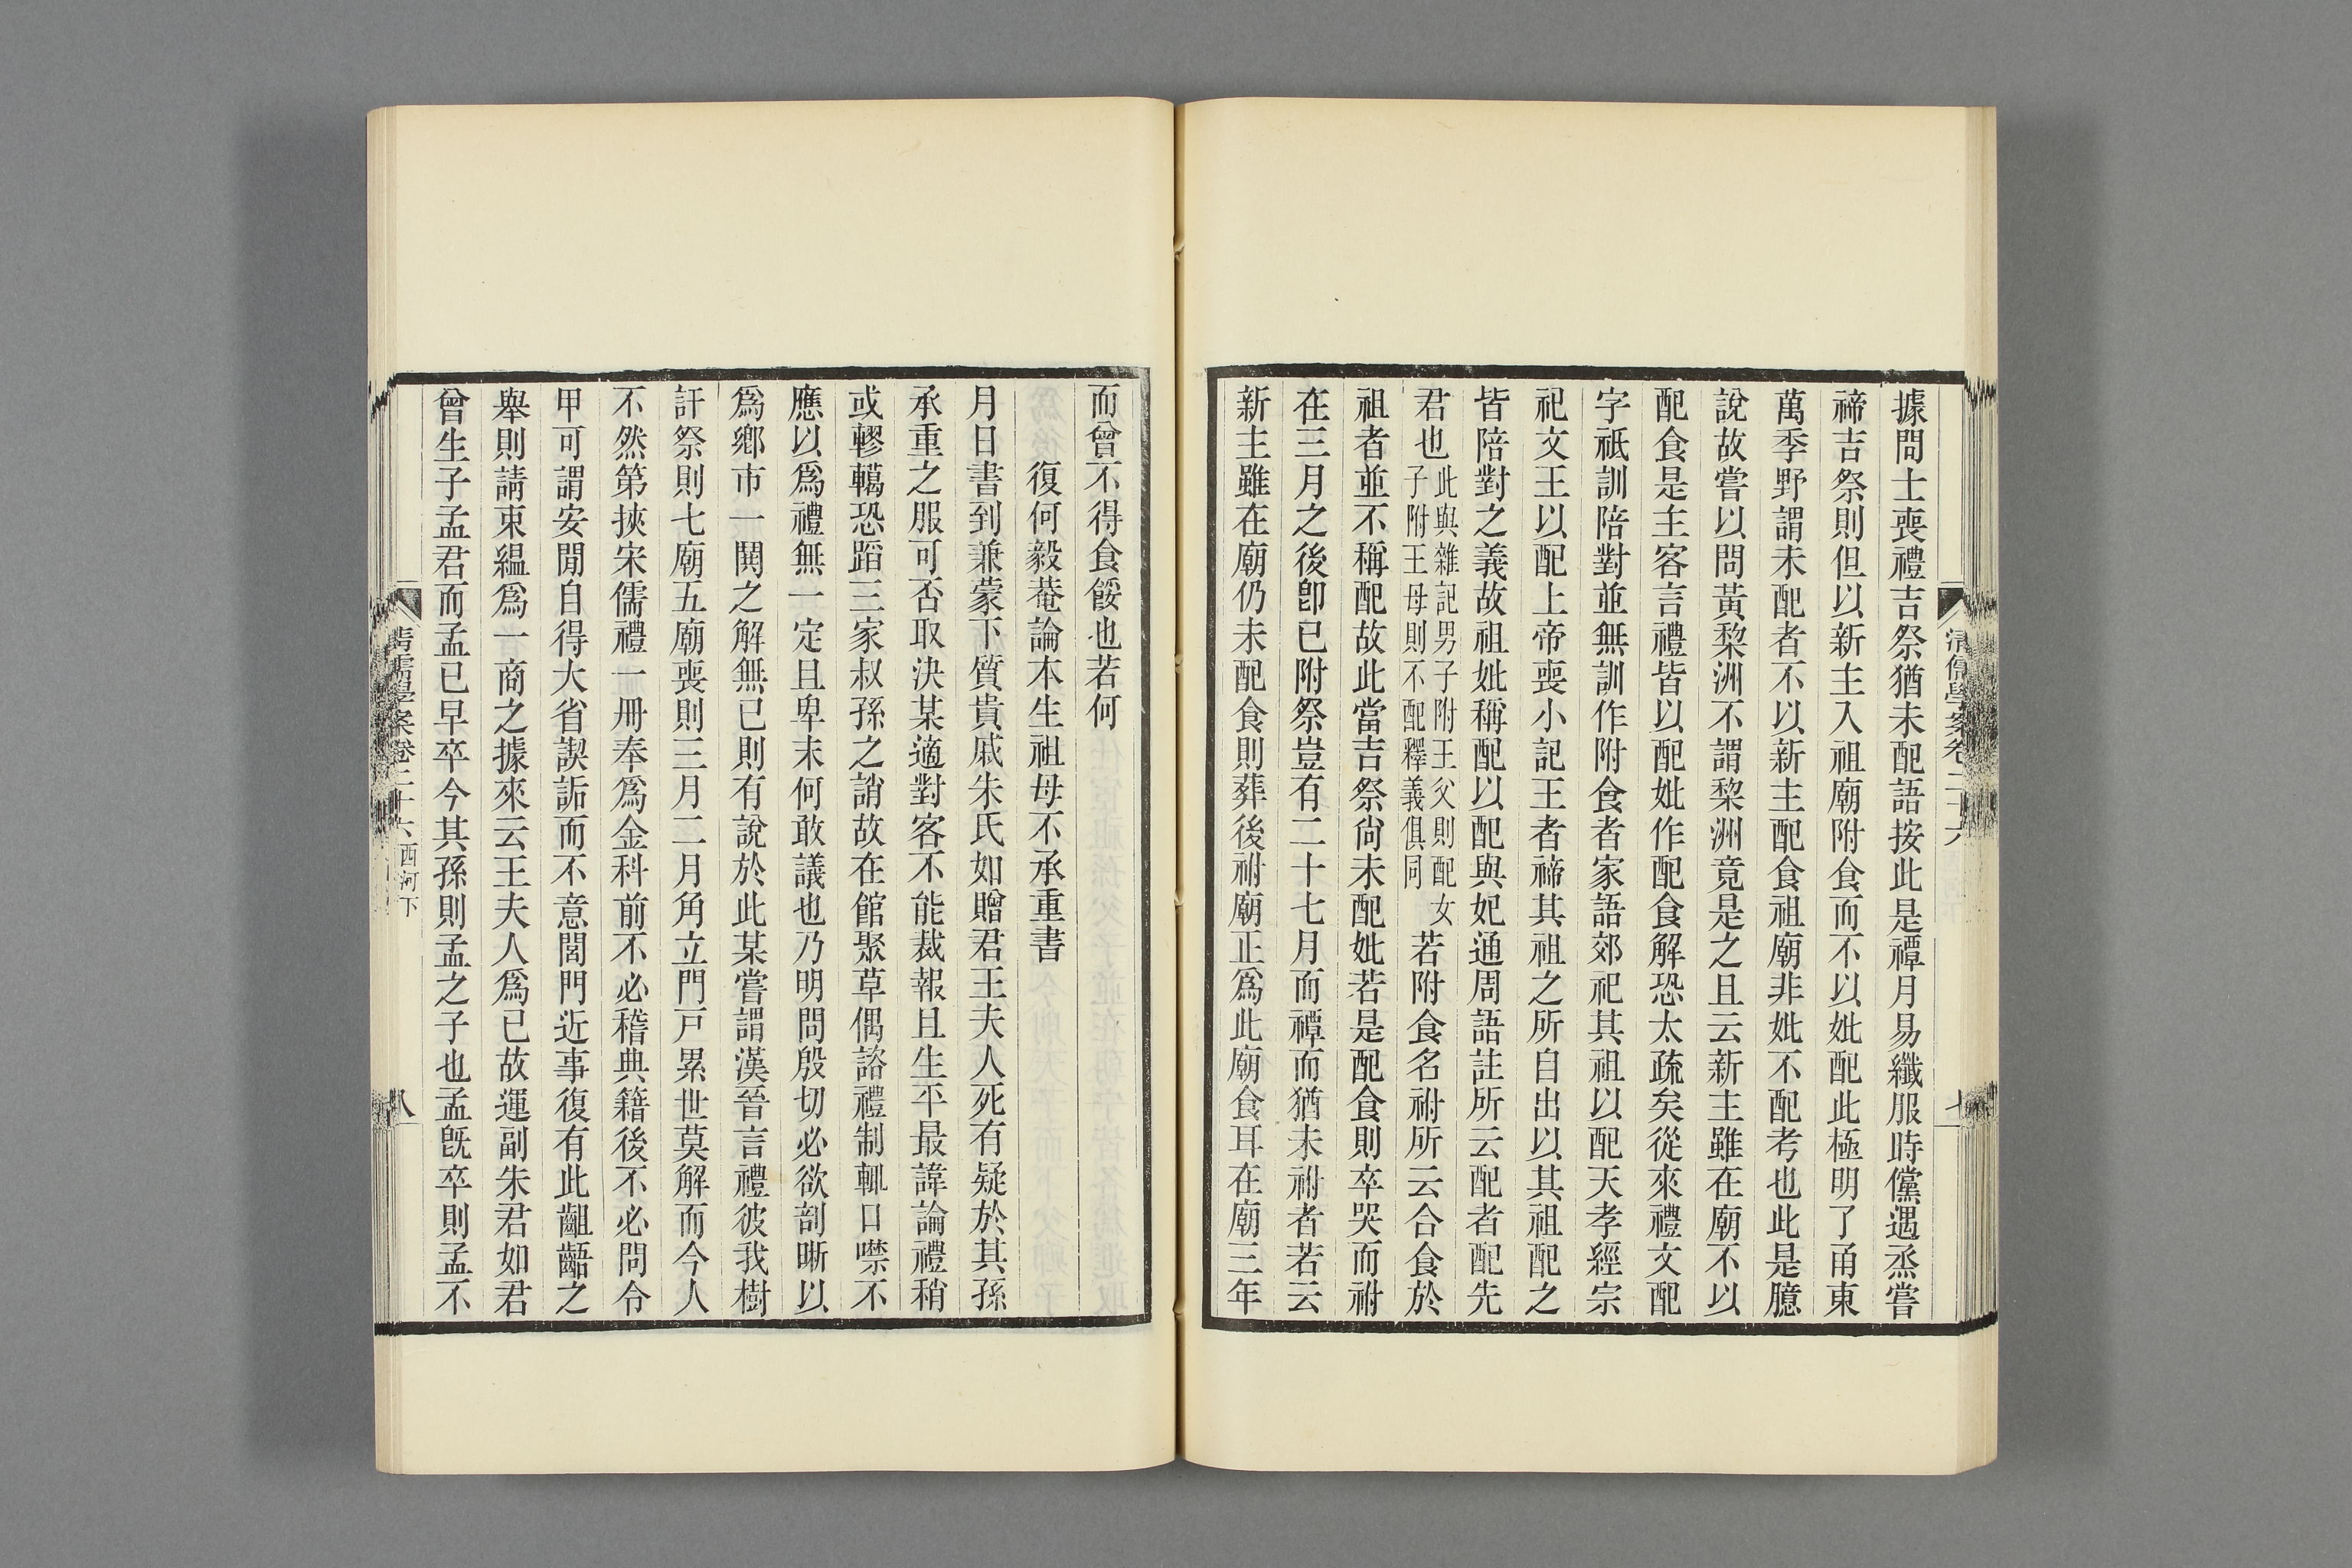 清儒學案卷二十六
七
據問士喪禮吉祭猶未配語按此是禫月易纖服時儻遇烝嘗
禘吉祭則但以新主入祖廟附食而不以妣配此極明了甬東
萬季野謂未配者不以新主配食祖廟非妣不配考也此是臆
說故嘗以問黃棃洲不謂棃洲竟是之且云新主雖在廟不以
配食是主客言禮皆以配妣作配食解恐太疏矣從來禮文配
字祇訓陪對並無訓作附食者家語郊祀其祖以配天孝經宗
祀文王以配上帝喪小記王者禘其祖之所自出以其祖配之
皆陪對之義故祖妣稱配以配與妃通周語註所云配者配先
君也此與雜記男子附王父則配女子附王母則不配釋義俱同若附食名祔所云合食於
祖者並不稱配故此當吉祭尙未配妣若是配食則卒哭而祔
在三月之後卽已附祭豈有二十七月而禫而猶未祔者若云
新主雖在廟仍未配食則葬後祔廟正爲此廟食耳在廟三年
而曾不得食餒也若何
復何毅菴論本生祖母不承重書
月日書到兼蒙下質貴戚朱氏如贈君王夫人死有疑於其孫
承重之服可否取決某適對客不能裁報且生平最諱論禮稍
或轇轕恐蹈三家叔孫之誚故在館聚草偶諮禮制輒口噤不
應以爲禮無一定且卑末何敢議也乃明問殷切必欲剖晰以
爲鄉市一鬨之解無已則有說於此某嘗謂漢晉言禮彼我樹
訐祭則七廟五廟喪則三月二月角立門戸累世莫解而今人
不然第挾宋儒禮一冊奉爲金科前不必稽典籍後不必問令
甲可謂安閒自得大省謑詬而不意閭門近事復有此齟齬之
舉則請束縕爲一商之據來云王夫人爲已故運副朱君如君
曾生子孟君而孟已早卒今其孫則孟之子也孟旣卒則孟不
清儒學案卷二十六 西河下
八